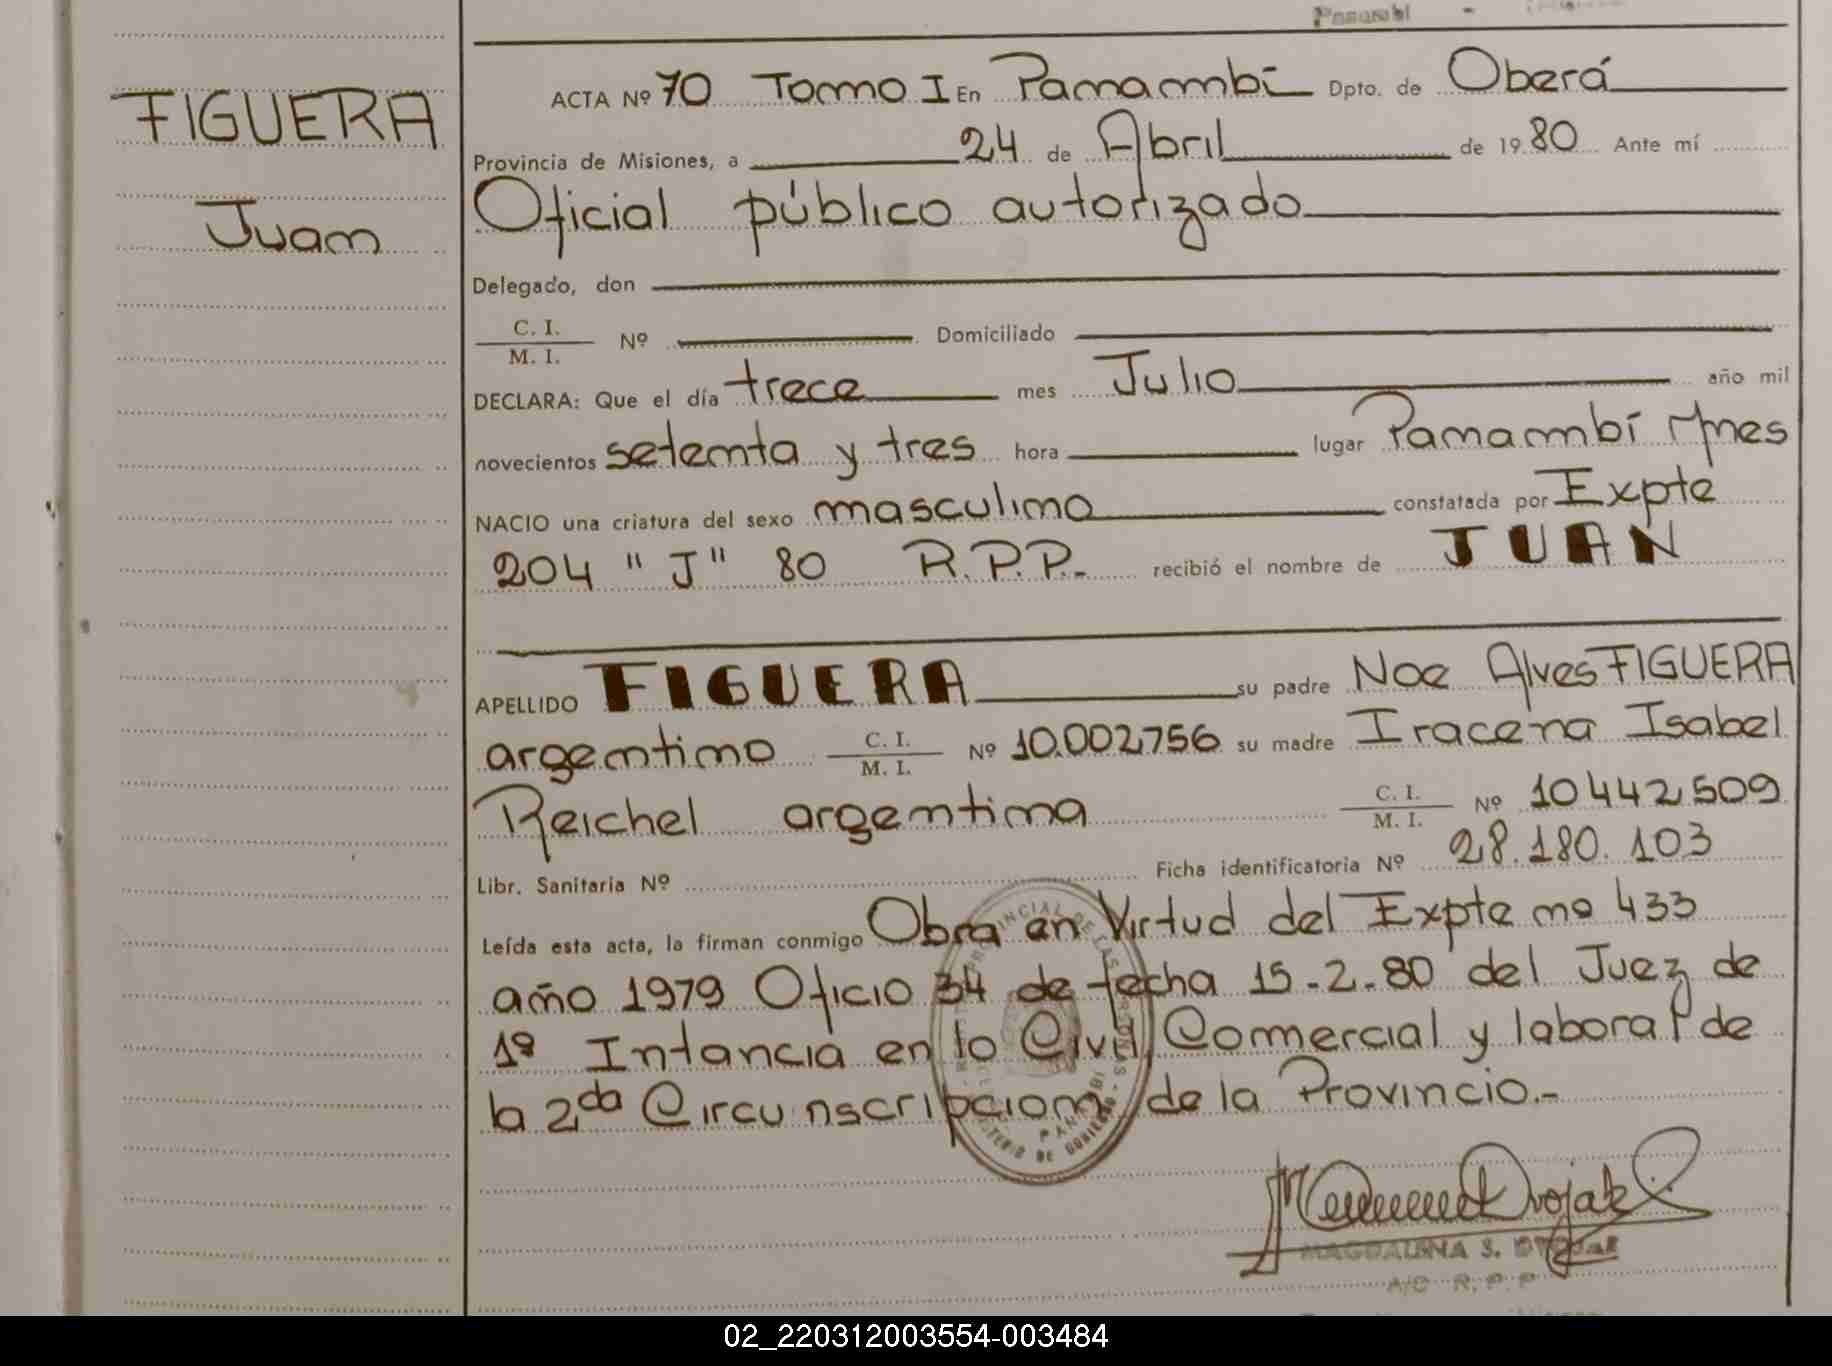 Panambí -
FIGUERA
Juan
ACTA Nº 70 Tomo I En Panambí Dpto. de Oberá
Provincia de Misiones, a 24 de Abril de 1980 Ante mí
Oficial público autorizado
Delegado, don
C. I.
M. I. Nº Domiciliado
DECLARA: Que el día trece mes Julio año mil
novecientos setenta y tres hora lugar Panambí Mnes
NACIO una criatura del sexo masculino constatada por Expte
204 "J" 80 R.P.P. recibió el nombre de JUAN
APELLIDO FIGUERA su padre Noe Alves FIGUERA
argentino C. I. M. I. Nº 10.002756 su madre Iracena Isabel
Reichel argentina C. I. M. I. Nº 10442509
Libr. Sanitaria Nº Ficha identificatoria Nº 28.180.103
Leída esta acta, la firman conmigo Obra en Virtud del Expte nº 433
año 1979 Oficio 34 de fecha 15-2-80 del Juez de
1º Intancia en lo Civil Comercial y laboral de
la 2da Circunscripcion de la Provincia.-
PROVINCIAL DE LAS PERSONAS
PANAMBI
MINISTERIO DE GOBIERNO
MAGDALENA S.
A/C R.P.P
02_220312003554-003484